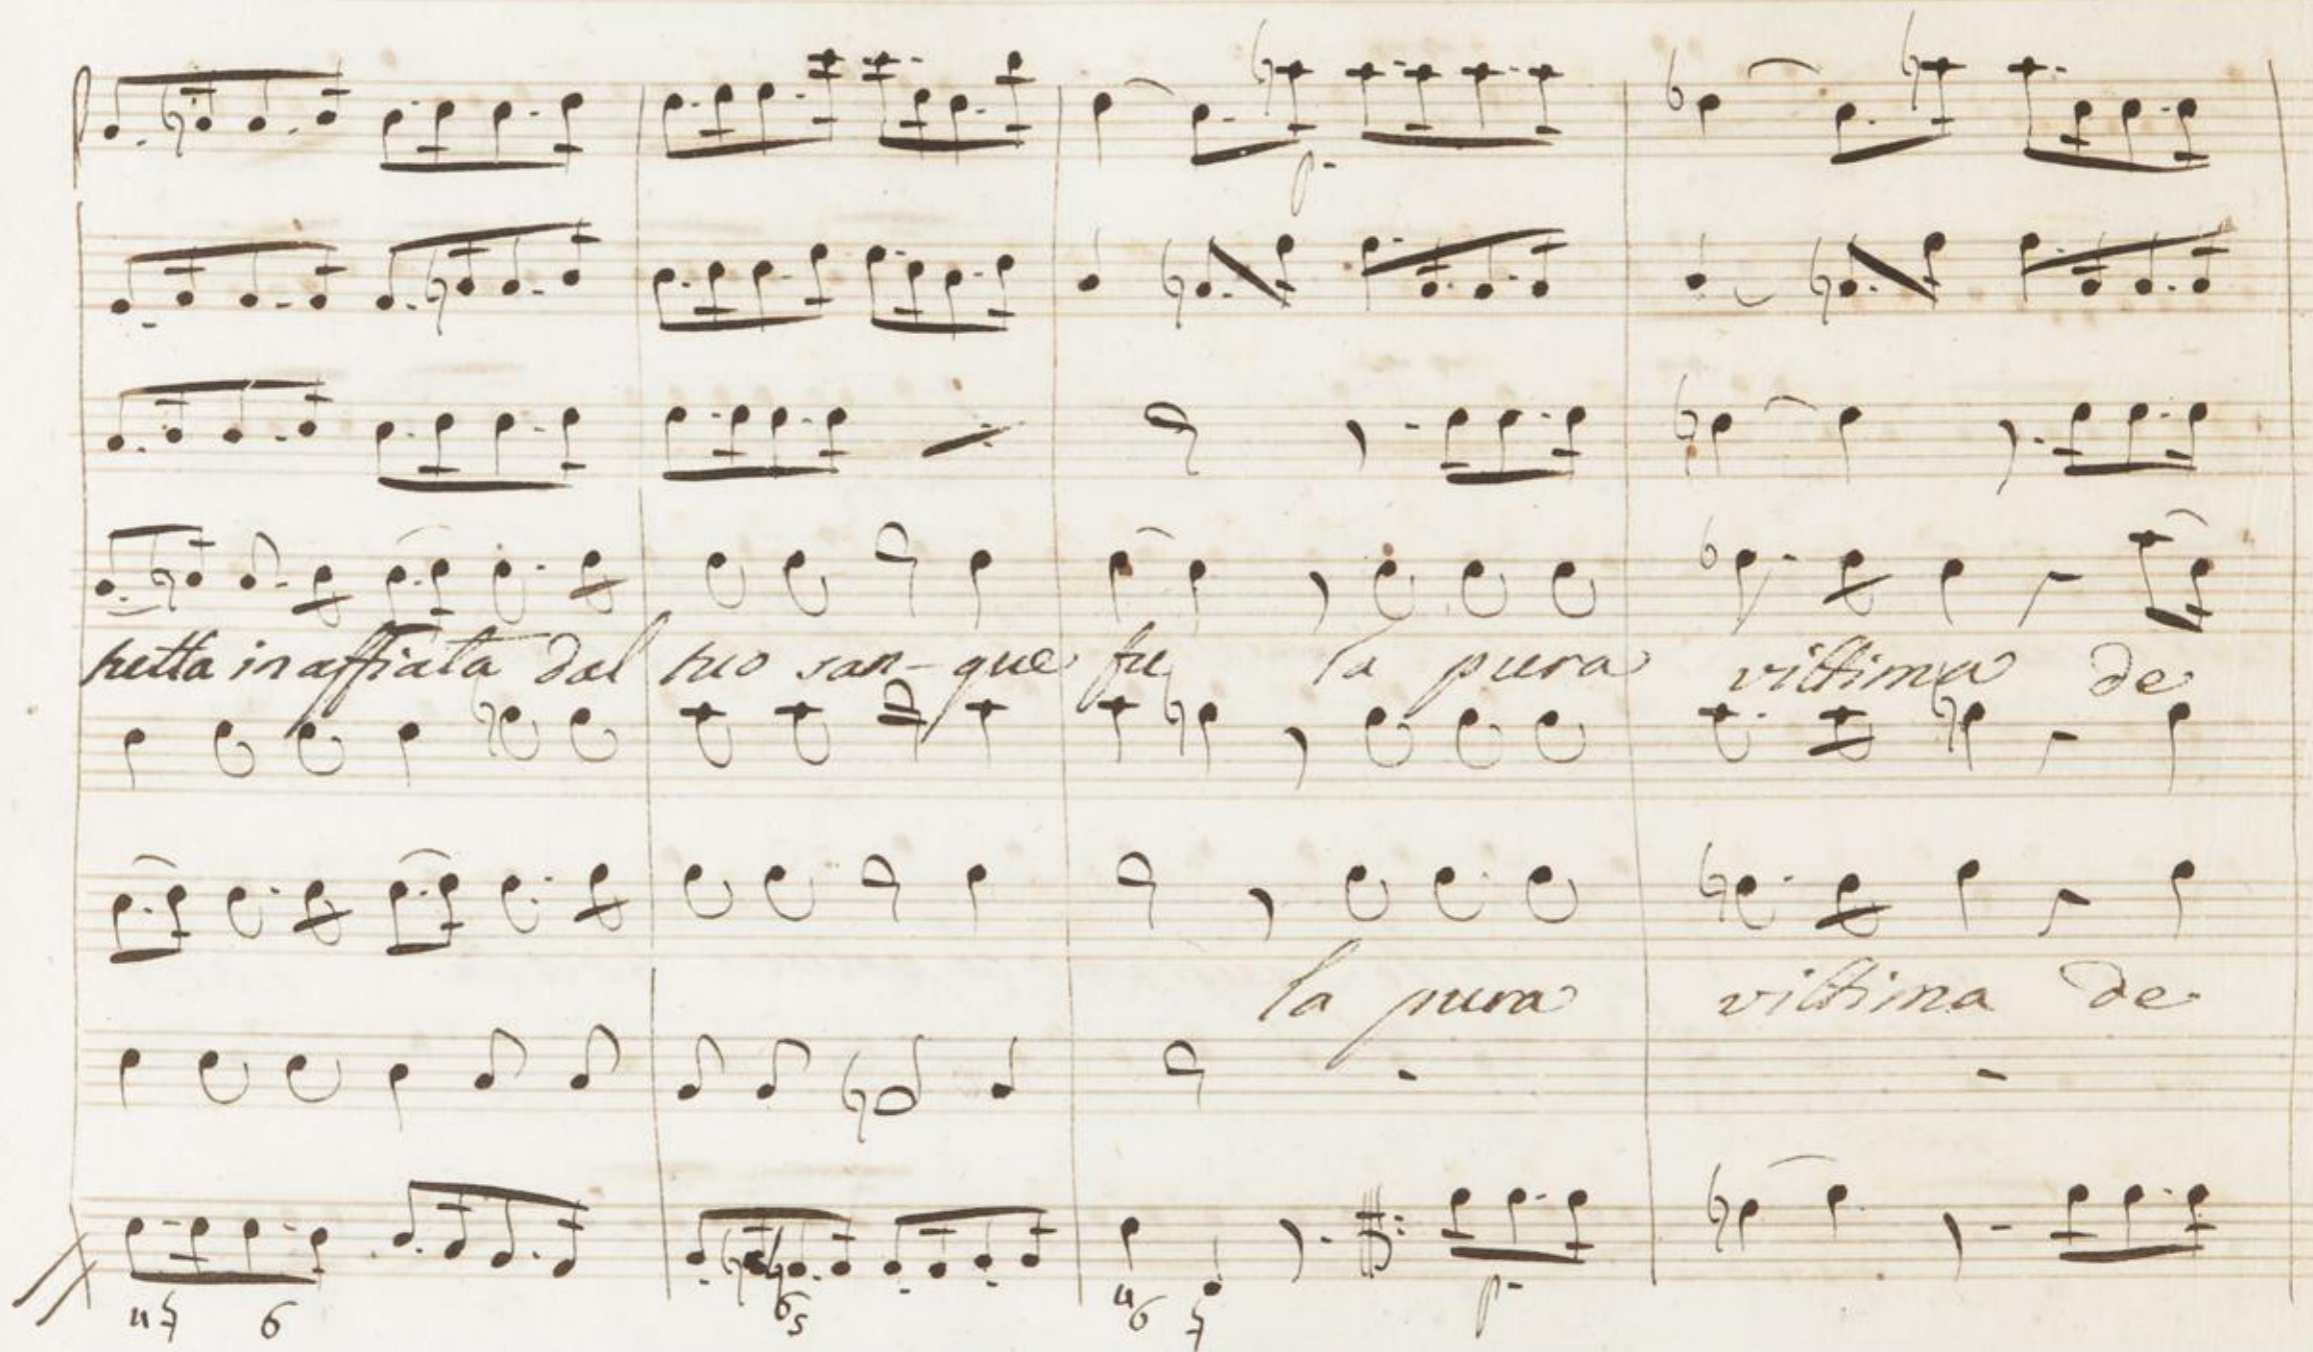 p.
tutta in affiata dal tuo san-que fu la pura vittima de
la pura vittima de
p.
47 6 6 5 4 6 7